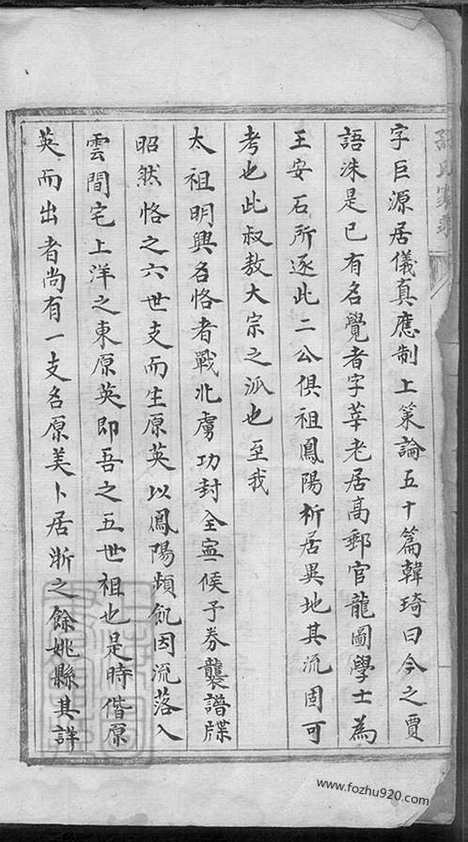 字巨源居儀真應制上策論五十篇韓琦曰今之賈
語洙是已有名覺者字莘老居高郵官龍圖學士為
王安石所逐此二公俱祖鳳陽析居異地其流固可
考也此叔敖大宗之派也至我
太祖明興名恪者戰北虜功封全寧侯予券襲譜牒
昭然恪之六世支而生原英以鳳陽頻飢因流落入
雲間宅上洋之東原英即吾之五世祖也是時偕原
英而出者尚有一支名原美卜居浙之餘姚縣其詳
www.fozhu920.com